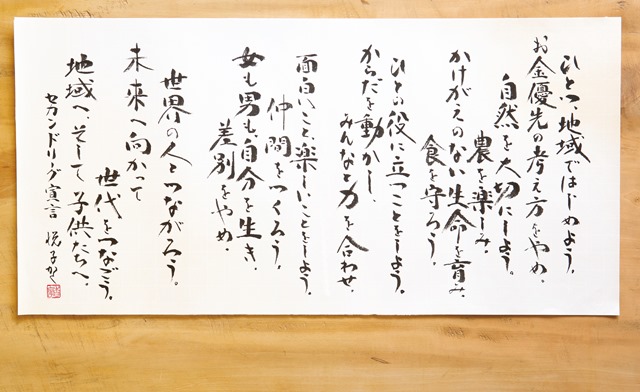 ひとつ、地域ではじめよう。
お金優先の考え方をやめ、
自然を大切にしよう。
農を楽しみ、
かけがえのない生命を育み、
食を守ろう。
ひとの役に立つことをしよう。
からだを動かし、
みんなと力を合わせ、
面白いこと、楽しいことをしよう。
仲間をつくろう。
女も男も、自分を生き、
差別をやめ、
世界の人とつながろう。
未来へ向かって
世代をつなごう。
地域へ、そして子供たちへ。
セカンドリーグ宣言 悦子かく